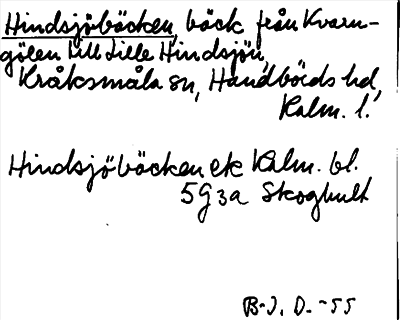 Hindsjöbäcken, bäck från Kvarn-
gölen till Lille Hindsjön,
Kråksmåla sn, Handbörds hd,
Kalm. l.
Hindsjöbäcken ek Kalm. bl.
5G3a Skoghult
B-J. D. -55